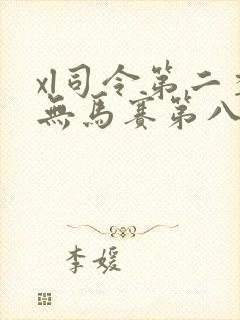 xl司令第二季
無馬賽第八
李媛